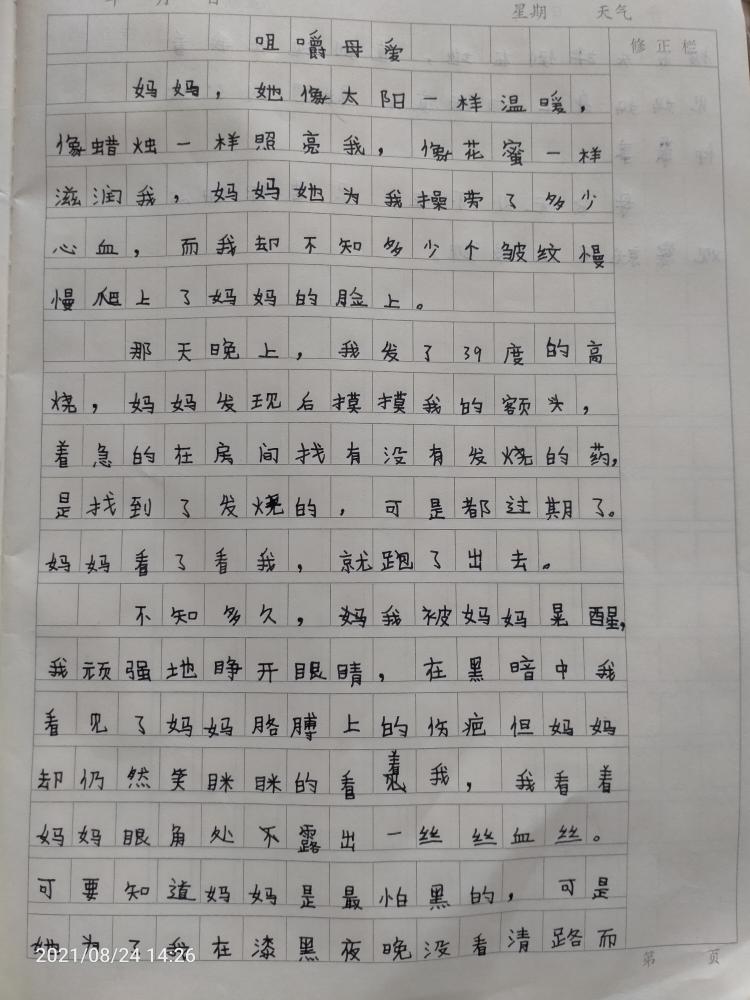 星期 天气
修正栏
咀嚼母爱
妈妈，她像太阳一样温暖，
像蜡烛一样照亮我，像花蜜一样
滋润我，妈妈她为我操劳了多少
心血，而我却不知多少个皱纹慢
慢爬上了妈妈的脸上。
那天晚上，我发了39度的高
烧，妈妈发现后摸摸我的额头，
着急的在房间找有没有发烧的药，
是找到了发烧的，可是都过期了。
妈妈看了看我，就跑了出去。
不知多久，我被妈妈晃醒，
我顽强地睁开眼睛，在黑暗中我
看见了妈妈胳膊上的伤疤但妈妈
却仍然笑眯眯的看着我，我看着
妈妈眼角处不露出一丝丝血丝。
可要知道妈妈是最怕黑的，可是
她为了我在漆黑夜晚没看清路而
第 页
2021/08/24 14:26